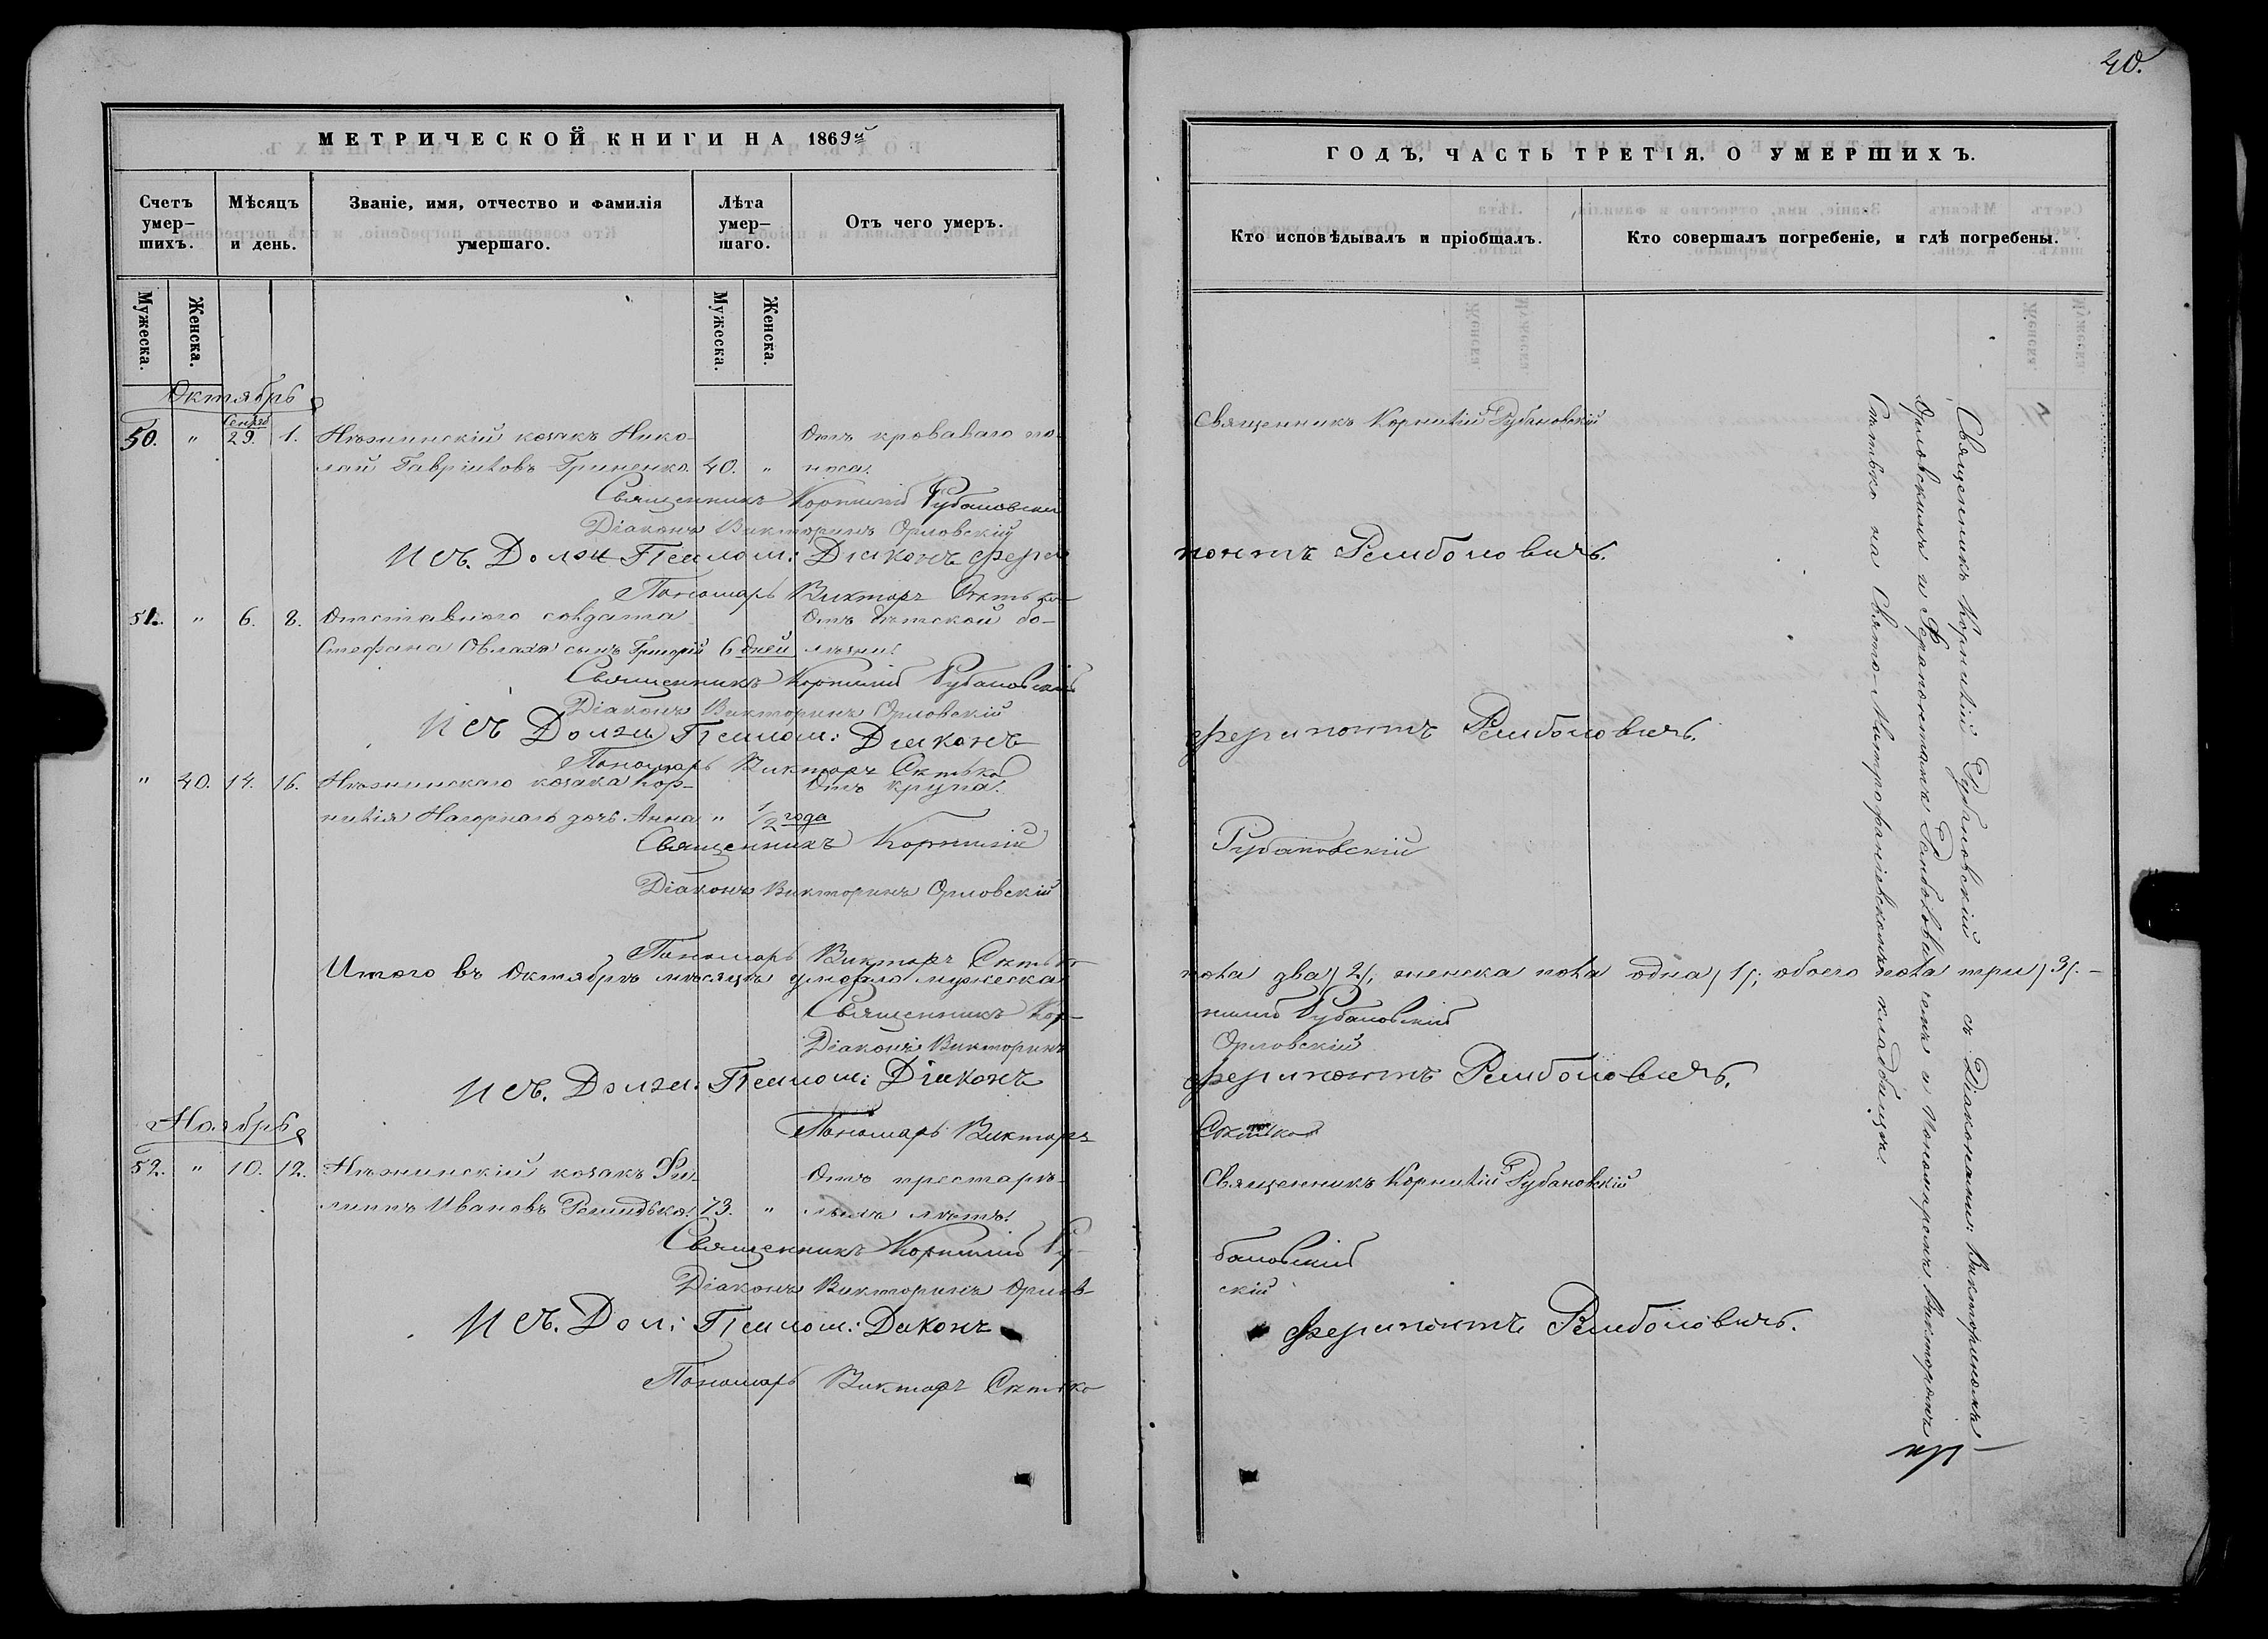 40.
МЕТРИЧЕСКОЙ КНИГИ НА 1869й
ГОДЪ, ЧАСТЬ ТРЕТІЯ. О УМЕРШИХЪ.
Счетъ умер-шихъ.
Мѣсяцъ и день.
Званіе, имя, отчество и фамилія умершаго.
Лѣта умер-шаго.
Отъ чего умеръ.
Кто исповѣдывалъ и пріобщалъ.
Кто совершалъ погребеніе, и гдѣ погребены.
Мужеска.
Женска.
Мужеска.
Женска.
Октябрь
50. " 29. 1. Нѣжинскій козакъ Нико- Отъ кроваваго по- Священникъ Корнилій Рубановскій
лай Гавріиловъ Гриненко. 40. " носа.
Священникъ Корнилій Рубановскій
Діаконъ Викторинъ Орловскій
Исъ. Должн Псалом: Діаконъ Ферапонтъ Рамболовичъ.
Пономарь Викторъ
51. " 6. 8. Отставного солдата Отъ дѣтской бо-
Стефана сынъ Григорій 6 дней лѣзни.
Священникъ Корнилій Рубановскій
Діаконъ Викторинъ Орловскій
Исъ Должн Псалом: Діаконъ Ферапонтъ Рамболовичъ.
Пономарь Викторъ
" 40. 14. 16. Нѣжинскаго козака Кор- Отъ крупа.
нилія Нагорнаго дочь Анна " 1/2 года
Священникъ Корнилій Рубановскій
Діаконъ Викторинъ Орловскій
Пономарь Викторъ
Итого въ Октябрѣ мѣсяцѣ умерло мужеска пола два /2/, женска пола одна /1/; обоего пола три /3/. –
Священникъ Корнилій Рубановскій
Діаконъ Викторинъ Орловскій
Исъ. Должн. Псалом: Діаконъ Ферапонтъ Рамболовичъ.
Пономарь Викторъ
Ноябрь
52. " 10. 12. Нѣжинскій козакъ Фи- Отъ престарѣ- Священникъ Корнилій Рубановскій
липпъ Ивановъ 73. " лыхъ лѣтъ.
Священникъ Корнилій Рубановскій
Діаконъ Викторинъ Орловскій
Исъ. Дол: Псалом: Діаконъ Ферапонтъ Рамболовичъ.
Пономарь Викторъ
Священникъ Корнилій Рубановскій съ Діаконами: Викториномъ
Орловскимъ и Ферапонтомъ Рамболовичемъ и Пономаремъ Викторомъ
на Свято-Митрофаніевскомъ кладбищѣ.